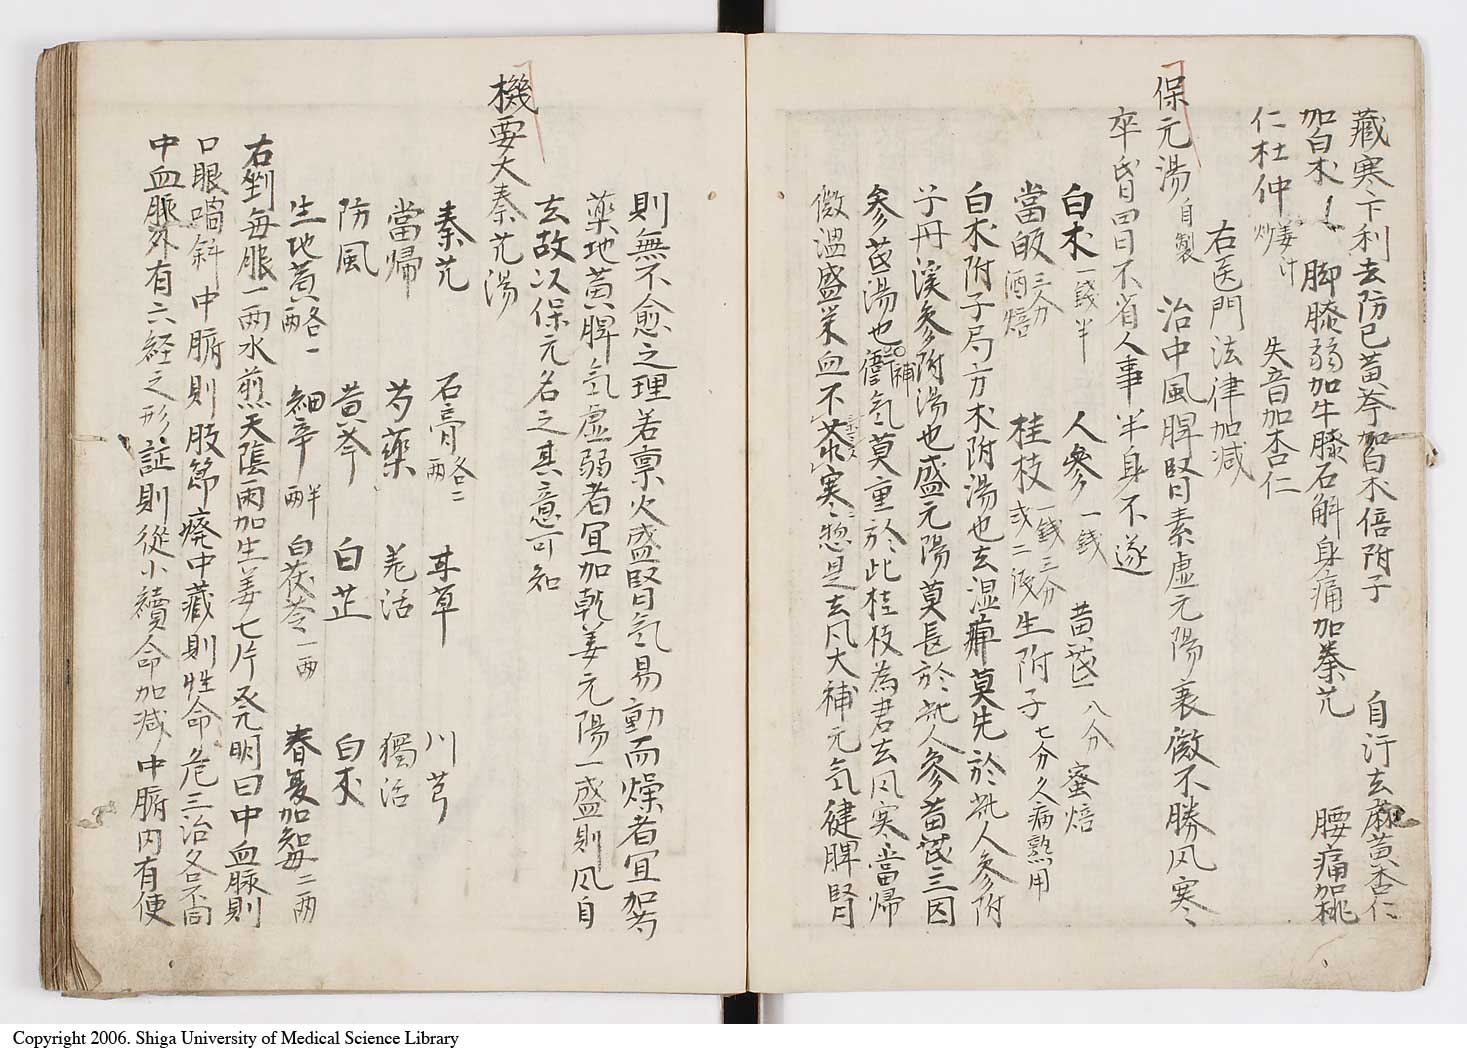 藏寒下利去防已黄芩加白朮倍附子 自汗去麻黄杏仁
加白朮 脚膝弱加牛膝石斛身痛加秦艽 腰痛加桃
仁杜仲姜汁炒 失音加杏仁
右医門法律加减
保元湯自製 治中風脾腎素虚元陽衰微不勝风寒
卒昏四日不省人事半身不遂
白朮一錢半 人參一錢 黄芪一八分蜜焙
當皈三分酒焙 桂枝一錢三分或二 生附子七分久病熟用
白朮附子局方朮附湯也去湿痺莫先於此人參附
子丹溪參附湯也盛元陽莫長於此人參黄芪三因
參芪湯也補气莫重於此桂枝為君去风寒當帰
微温盛栄血不寒惣是去风大補元气健脾腎
則無不愈之理若禀火盛腎気易動而燥者宜加芍
薬地黄脾気虚弱者宜加乾姜元陽一盛則风自
去故以保元名之其意可知
機要大秦艽湯
秦艽 石膏各二兩 甘草 川芎
當帰 芍藥 羌活 獨活
防風 黄芩 白芷 白朮
生地黄各一兩 細辛半兩 白茯苓一兩 春夏加知母二兩
右剉每服一两水煎天陰雨加生姜七片発明曰中血脉則
口眼喎斜中腑則肢節癈中藏則性命危三治各不同
中血脈外有六経之形証則從小續命加减中腑内有便
Copyright 2006. Shiga University of Medical Science Library